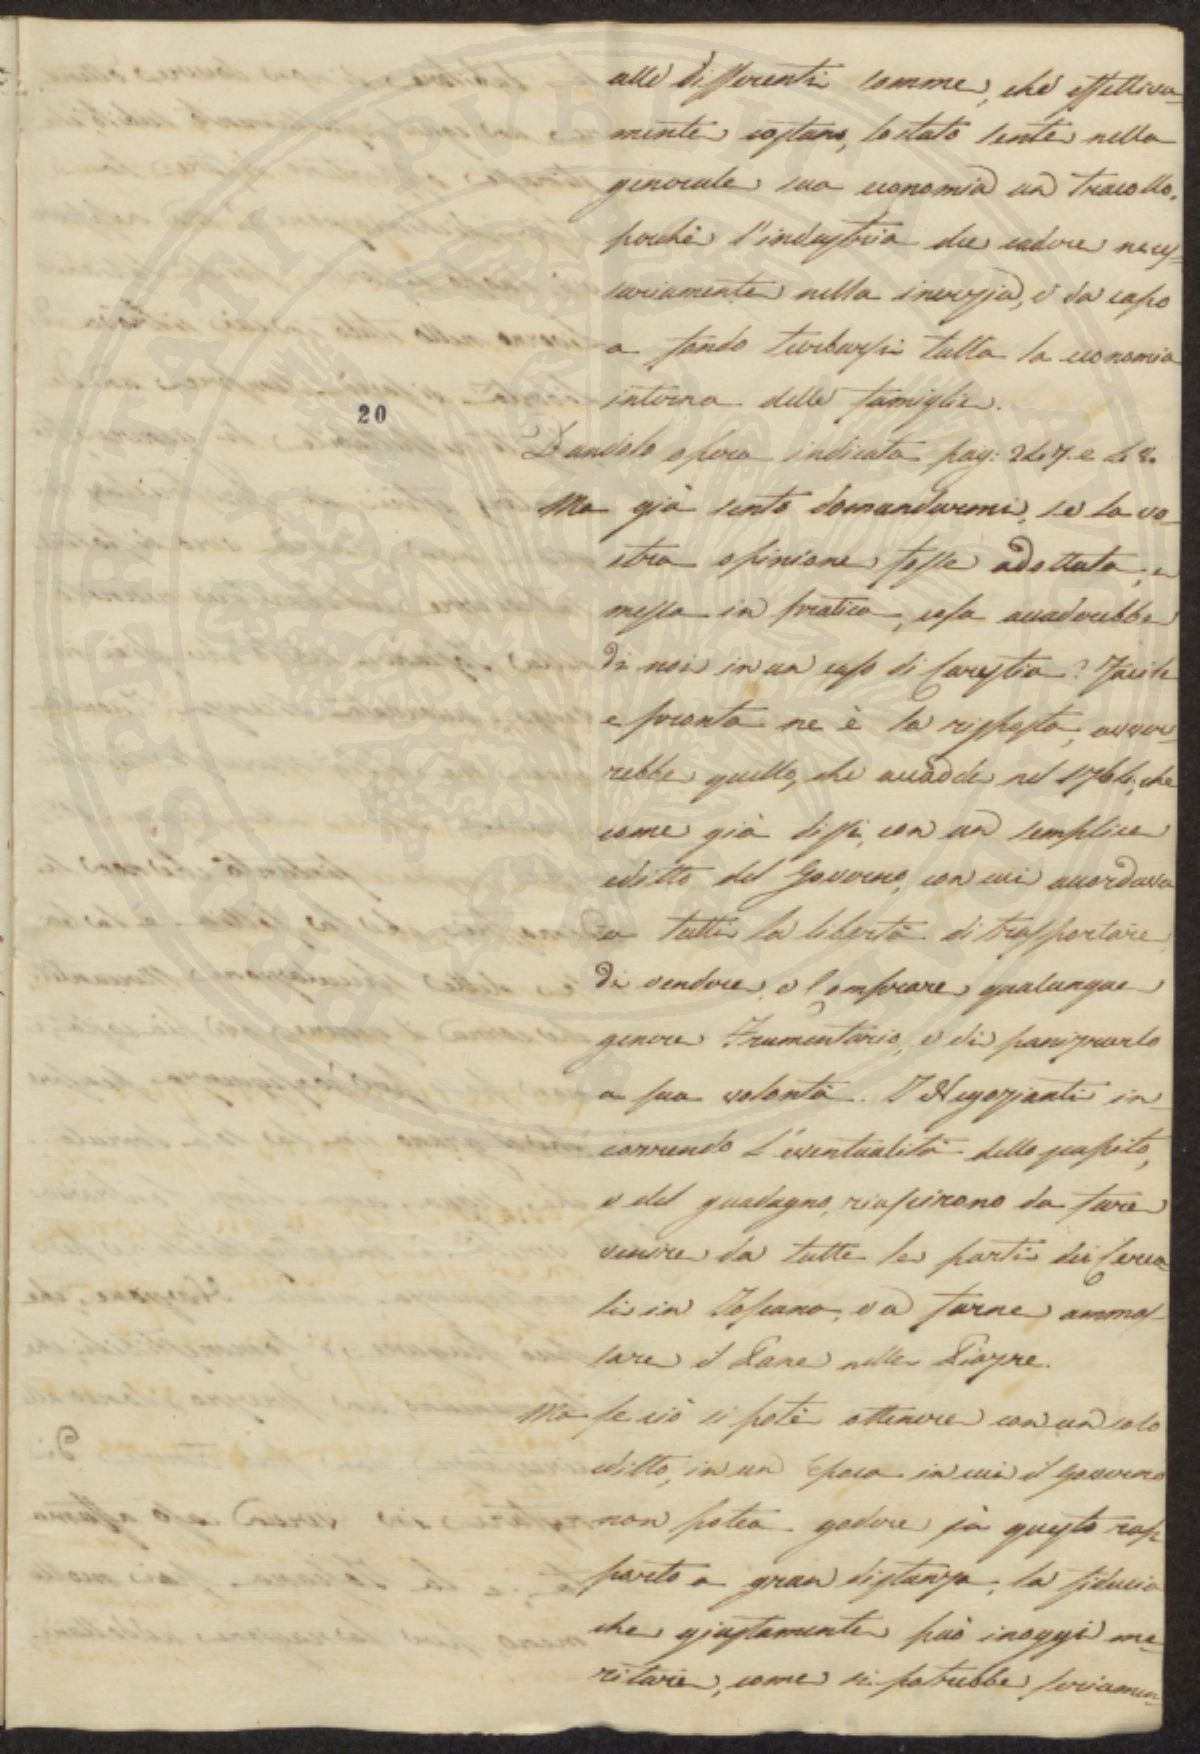 alle differenti somme, che effettiva-
mente costano, lo stato sente nella
generale sua economia un tracollo.
perchè l'industria dee cadere neces-
sariamente nella inerzia, e da capo
a fondo turbarsi tutta la economia
interna delle famiglie.
20
Dandolo opera indicata pag: 247. e 48.
Ma già sento domandarmi, se la vo-
stra opinione fosse adottata, e
messa in pratica, cosa accaderebbe
di noi in un caso di Carestia? Facile
e pronta ne è la risposta, avver-
rebbe quello, che accadde nel 1764; che
come già dissi, con un semplice
editto del Governo, con cui accordava
a tutti la libertà di trasportare
di vendere, e Comprare qualunque
genere Frumentario, e di panizzarlo
a sua volontà. I Negozianti in-
correndo l'eventualità dello scapito,
e del guadagno, riuscirono da fare
venire da tutte le parti dei Cerea-
li in Toscana, e a farne ammas-
sare il Pane nelle Piazze.
Ma se ciò si potè ottenere con un solo
editto, in un Epoca in cui il Governo
non potea godere in questo rap-
porto a gran distanza, la fiducia
che giustamente può inoggi me-
ritare, come si potrebbe seriamen-